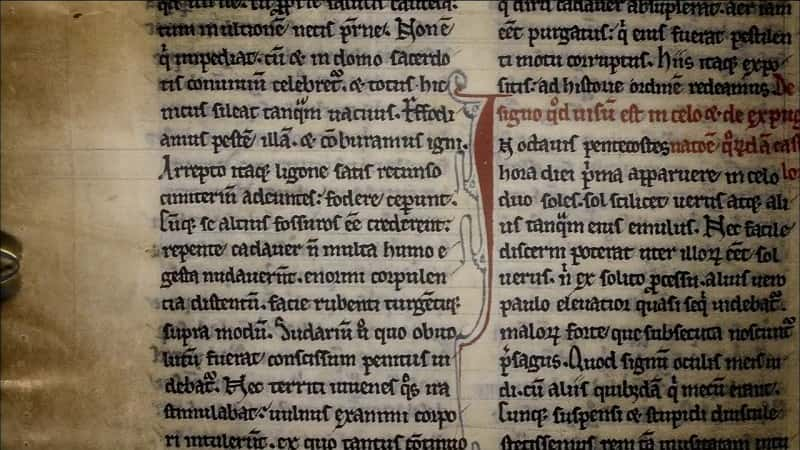 tum in ultione necis p̄rne. Non ē
q̇ impediat. cū & in domo sacerdo
tis conuiuiū celebret᷑. & totus hic
uicus sileat tanqͣm uacuus. Effodi
amus pestē illā. & cōburamus igni.
Arrepto itaq; ligone satis retunso
cimiteriū adeuntes: fodere ceperunt.
Cūq; se altius fossuros eē crederent:
repente cadauer n̄ multa humo e
gesta nudauerūt. enormi corpulen
tia distentū. facie rubenti turgētiq;
supra modū. Sudariū ů quo obuo
lutū fuerat conscissum penitus ui
debat᷑. Nec territi iuuenes q̊s ira
stimulabat: uulnus exanimi corpo
ri intulerūt. ex quo tantus cōtinuo
q̇ diru cadauer absumpserat. aer iam
eēt purgatus: q̇ eius fuerat pestilen
ti motu corruptus. Hiis itaq; expo
sitis: ad historie ordinē redeamus. De
signo qͦd uisū est in celo & de expug
In octauis pentecostes natōē q̊rūdā cas
hora diei p̄ma apparuere in celo lo
duo soles. sol scilicet uerus atq; ali
us tanqͣm eius emulus. Nec facile
discerni poterat uter illoꝝ eēt sol
uerus. n̄ ex solito ꝓcessu. alius uero
paulo eleuatior quasi seq̇ uidebat᷑.
maloꝝ forte que subsecuta noscunt᷑
p̄sagus. Quod signū oculis meis ui
di. cū aliis quibzdā q̇ mecū erant.
Cunq; suspensi & stupidi diuscule
stetissemus rem tā inusitatam intu